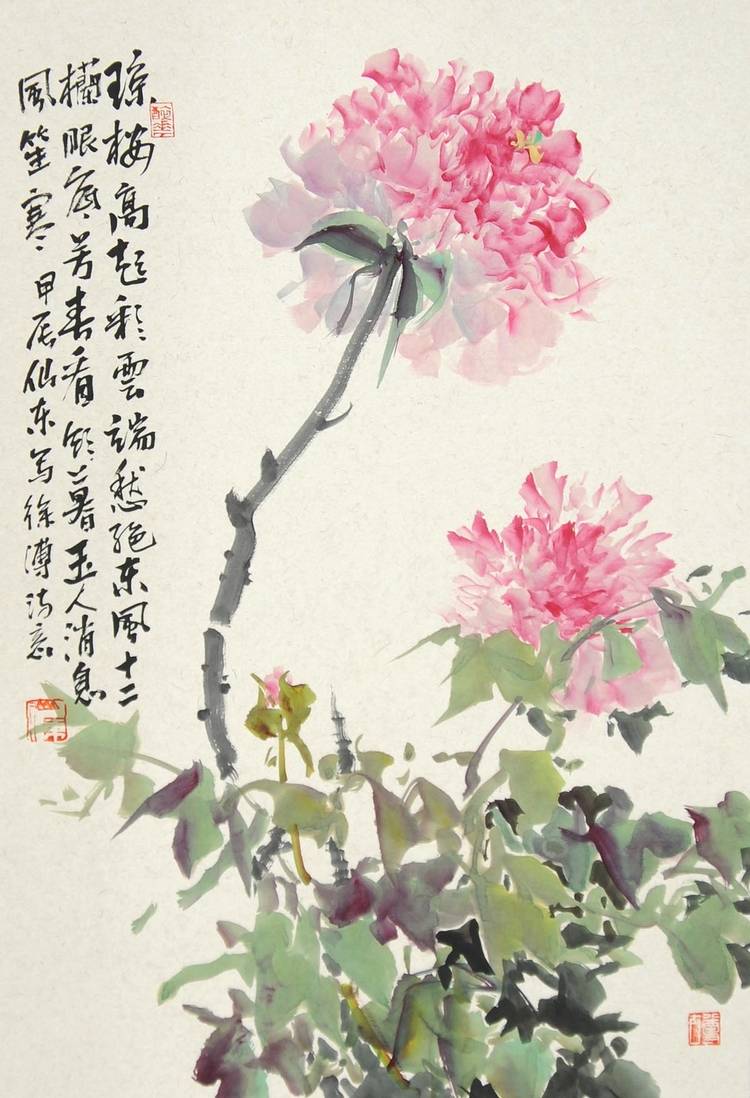 琼楼高起彩雲端愁绝东風十二
欄眼底芳春看欲暮玉人消息
風笙寒 甲辰仙东写徐溥诗意